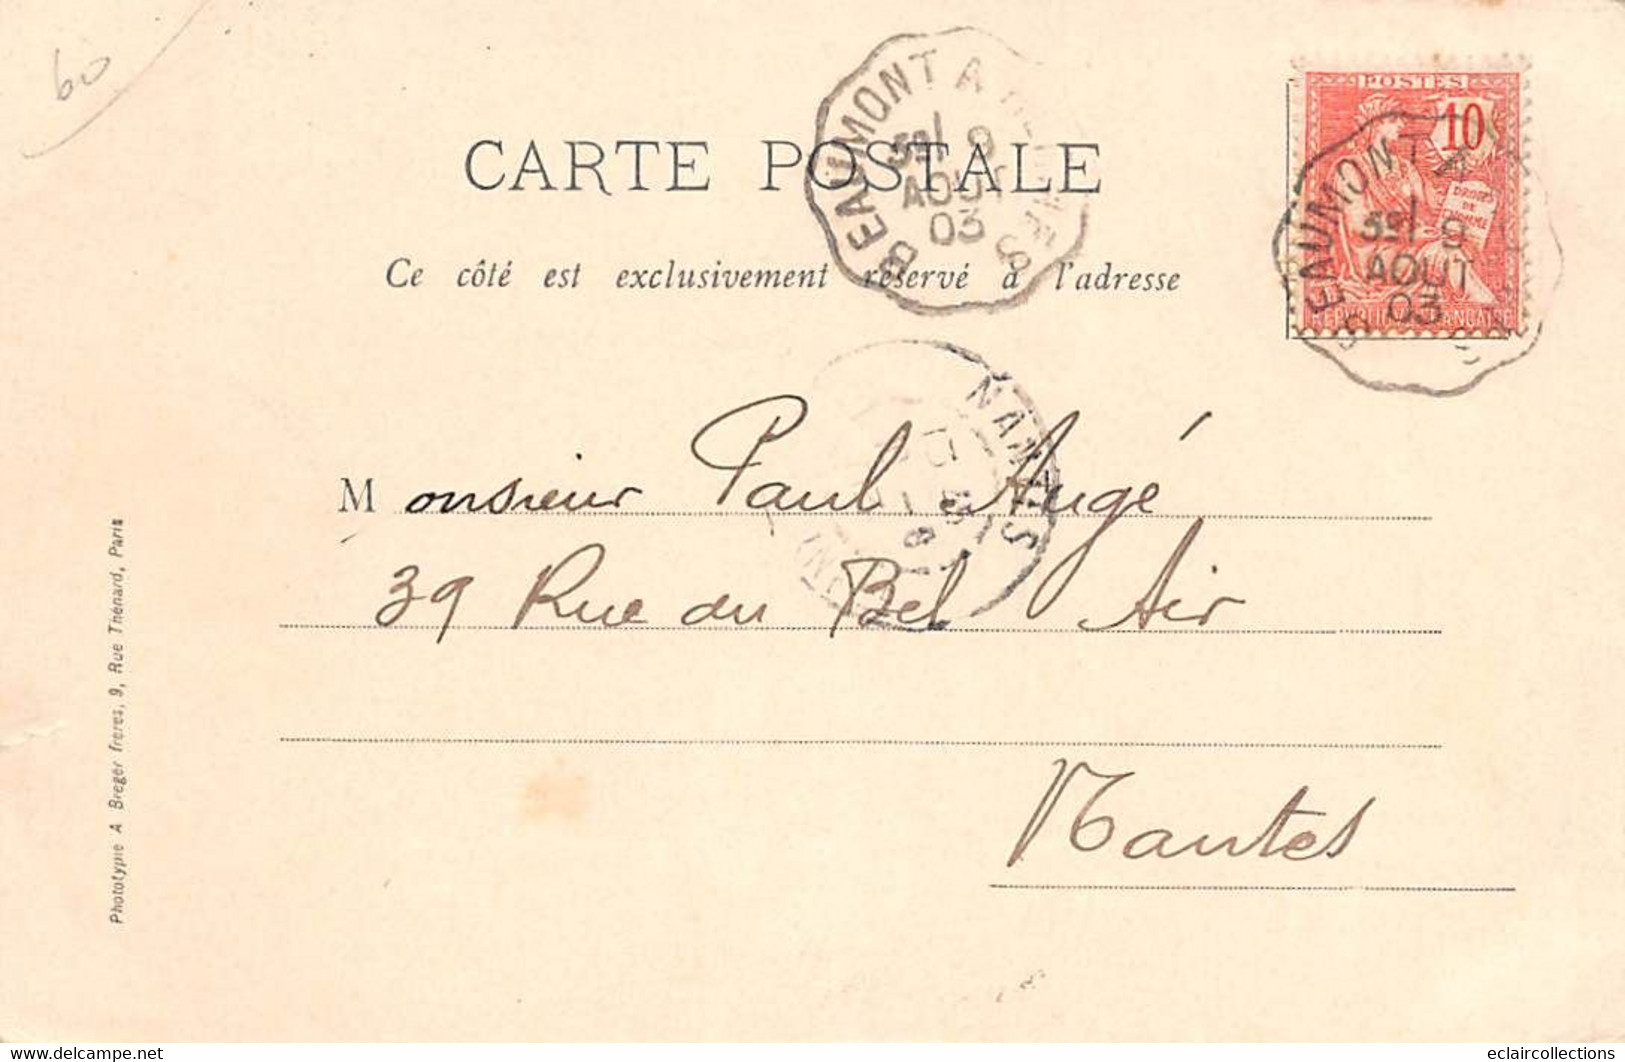 60
BEAUMONT A
9
AOUT
03
POSTES
10
DROITS
DE
BEAUMONT A
9
AOUT
03
CARTE POSTALE
Ce côté est exclusivement réservé à l'adresse
NANTES
Monsieur Paul Augé
39 Rue du Bel Air
Nantes
Phototypie A Breger frères, 9, Rue Thénard, Paris
eclaircollections
delcampe.net